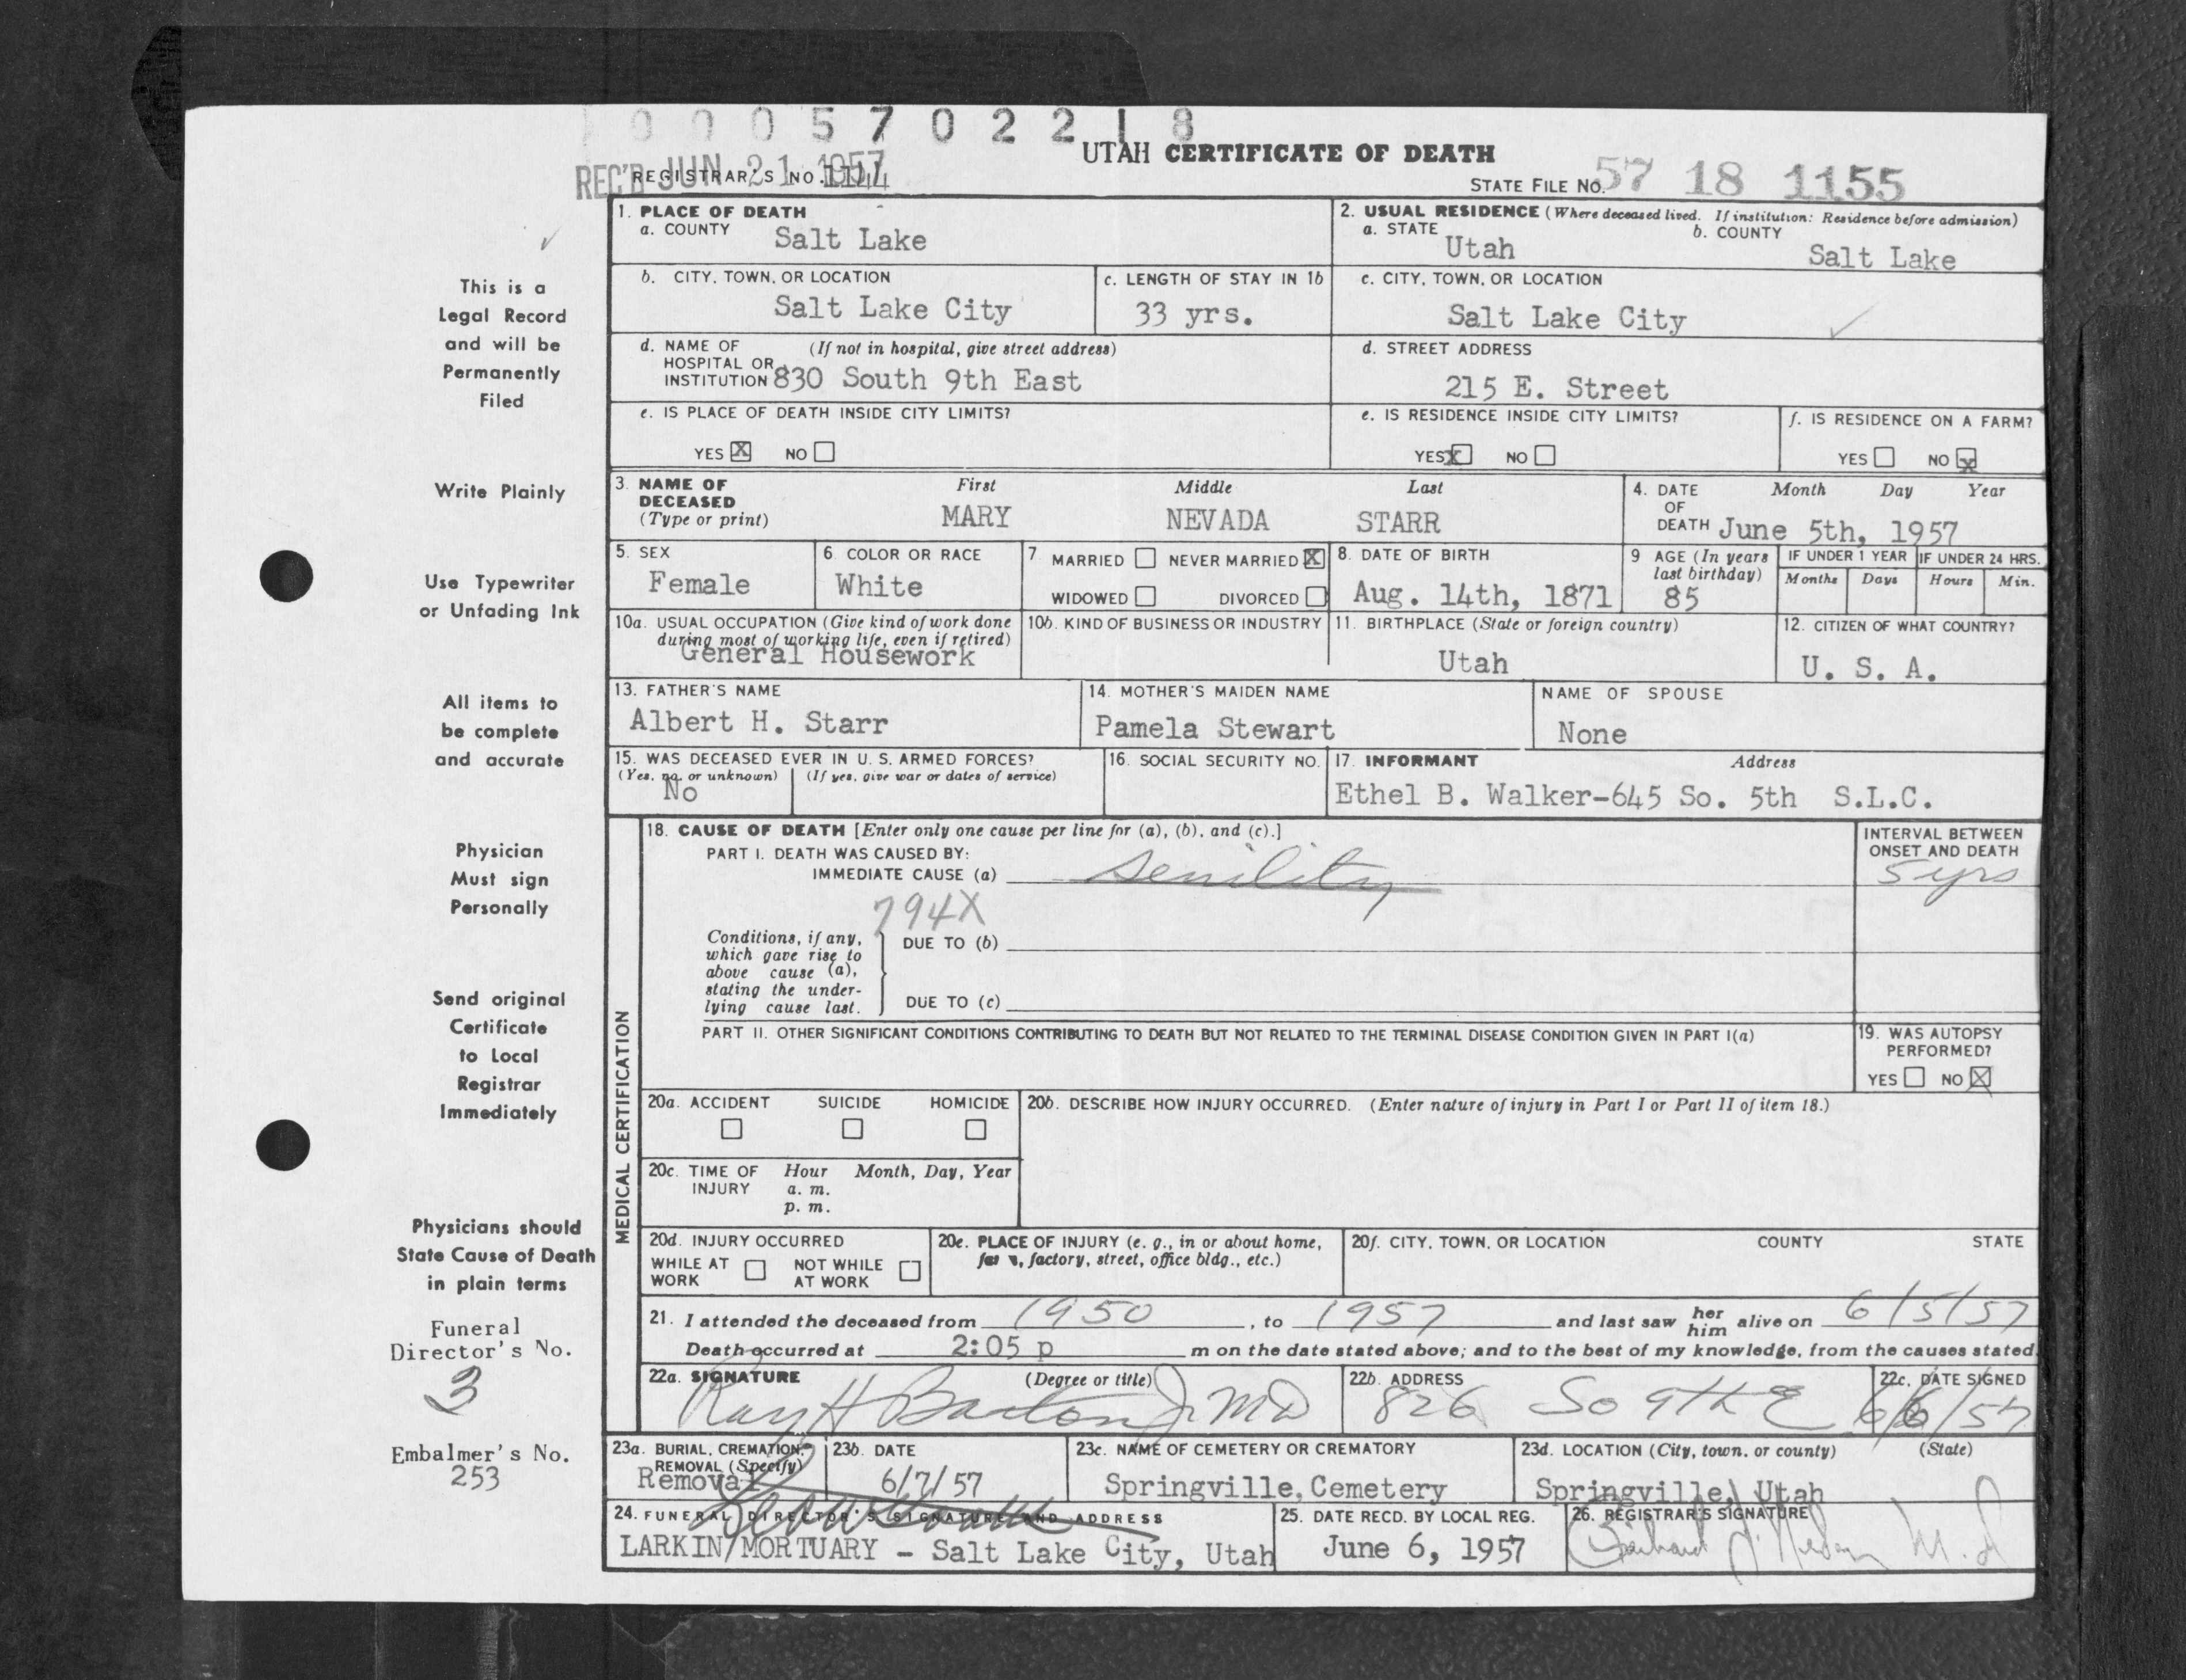 0 0 0 5 7 0 2 2 1 8
UTAH CERTIFICATE OF DEATH
REC'D JUN 21 1957
REGISTRAR'S NO. 1144
STATE FILE NO. 57 18 1155
1. PLACE OF DEATH
a. COUNTY Salt Lake
2. USUAL RESIDENCE (Where deceased lived. If institution: Residence before admission)
a. STATE Utah b. COUNTY Salt Lake
b. CITY, TOWN, OR LOCATION Salt Lake City
c. LENGTH OF STAY IN 1b 33 yrs.
c. CITY, TOWN, OR LOCATION Salt Lake City
d. NAME OF HOSPITAL OR INSTITUTION (If not in hospital, give street address) 830 South 9th East
d. STREET ADDRESS 215 E. Street
e. IS PLACE OF DEATH INSIDE CITY LIMITS?
YES X NO
e. IS RESIDENCE INSIDE CITY LIMITS?
YES X NO
f. IS RESIDENCE ON A FARM?
YES NO X
3. NAME OF DECEASED (Type or print)
First Middle Last
MARY NEVADA STARR
4. DATE OF DEATH Month Day Year
June 5th, 1957
5. SEX Female
6. COLOR OR RACE White
7 MARRIED NEVER MARRIED X
WIDOWED DIVORCED
8. DATE OF BIRTH Aug. 14th, 1871
9 AGE (In years last birthday) 85
IF UNDER 1 YEAR Months Days
IF UNDER 24 HRS. Hours Min.
10a. USUAL OCCUPATION (Give kind of work done during most of working life, even if retired)
General Housework
10b. KIND OF BUSINESS OR INDUSTRY
11. BIRTHPLACE (State or foreign country)
Utah
12. CITIZEN OF WHAT COUNTRY?
U. S. A.
13. FATHER'S NAME
Albert H. Starr
14. MOTHER'S MAIDEN NAME
Pamela Stewart
NAME OF SPOUSE
None
15. WAS DECEASED EVER IN U. S. ARMED FORCES?
(Yes, no, or unknown) (If yes, give war or dates of service)
No
16. SOCIAL SECURITY NO.
17. INFORMANT Address
Ethel B. Walker-645 So. 5th S.L.C.
MEDICAL CERTIFICATION
18. CAUSE OF DEATH [Enter only one cause per line for (a), (b), and (c).]
PART I. DEATH WAS CAUSED BY:
IMMEDIATE CAUSE (a) senility
INTERVAL BETWEEN ONSET AND DEATH
5 yrs
794X
Conditions, if any, which gave rise to above cause (a), stating the underlying cause last.
DUE TO (b)
DUE TO (c)
PART II. OTHER SIGNIFICANT CONDITIONS CONTRIBUTING TO DEATH BUT NOT RELATED TO THE TERMINAL DISEASE CONDITION GIVEN IN PART I(a)
19. WAS AUTOPSY PERFORMED?
YES NO X
20a. ACCIDENT SUICIDE HOMICIDE
20b. DESCRIBE HOW INJURY OCCURRED. (Enter nature of injury in Part I or Part II of item 18.)
20c. TIME OF INJURY Hour Month, Day, Year
a. m.
p. m.
20d. INJURY OCCURRED
WHILE AT WORK NOT WHILE AT WORK
20e. PLACE OF INJURY (e. g., in or about home, farm, factory, street, office bldg., etc.)
20f. CITY, TOWN, OR LOCATION COUNTY STATE
21. I attended the deceased from 1950, to 1957 and last saw her him alive on 6/5/57
Death occurred at 2:05 p m on the date stated above; and to the best of my knowledge, from the causes stated.
22a. SIGNATURE (Degree or title)
Ray H Barton Jr MD
22b. ADDRESS
826 So 9th E
22c. DATE SIGNED
6/6/57
23a. BURIAL, CREMATION, REMOVAL (Specify)
Removal
23b. DATE
6/7/57
23c. NAME OF CEMETERY OR CREMATORY
Springville, Cemetery
23d. LOCATION (City, town, or county) (State)
Springville, Utah
24. FUNERAL DIRECTOR'S SIGNATURE AND ADDRESS
LARKIN MORTUARY - Salt Lake City, Utah
25. DATE RECD. BY LOCAL REG.
June 6, 1957
26. REGISTRAR'S SIGNATURE
M. D
This is a
Legal Record
and will be
Permanently
Filed
Write Plainly
Use Typewriter
or Unfading Ink
All items to
be complete
and accurate
Physician
Must sign
Personally
Send original
Certificate
to Local
Registrar
Immediately
Physicians should
State Cause of Death
in plain terms
Funeral
Director's No.
3
Embalmer's No.
253